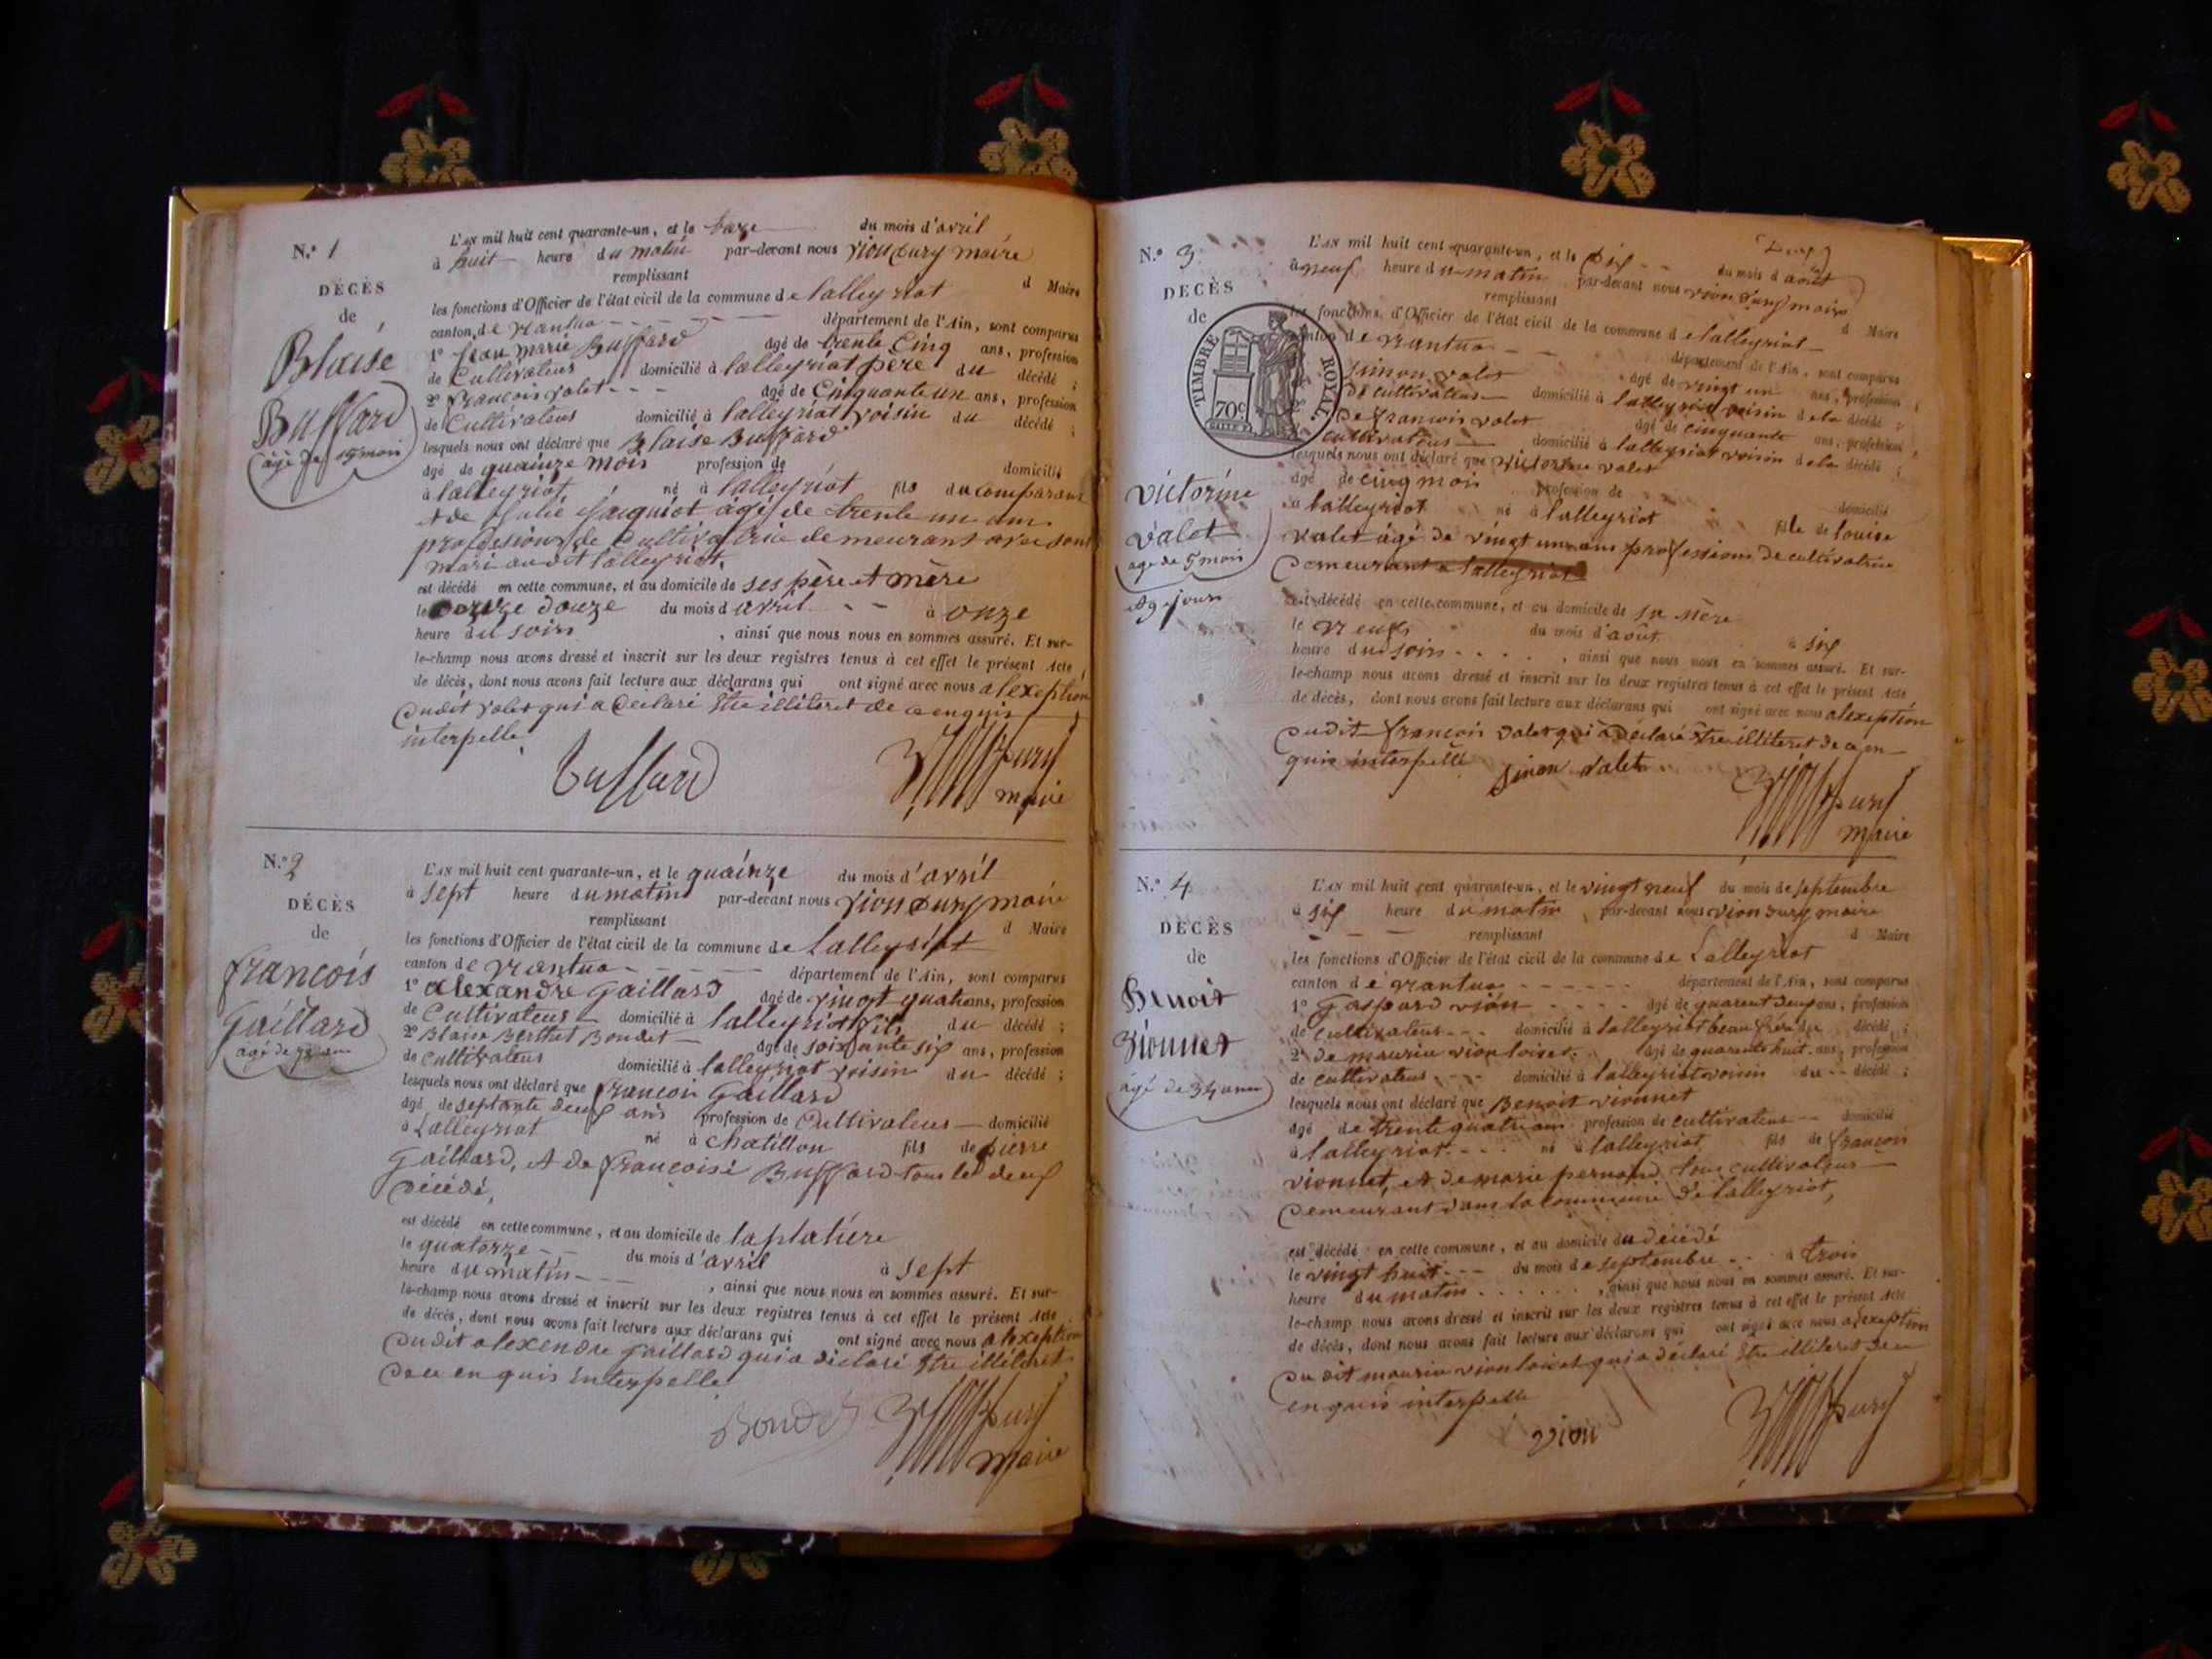 N.º 1
DÉCÈS
de
Blaise
Buffard
âgé de 15 mois
L'AN mil huit cent quarante-un, et le du mois d'avril
à huit heure du matin par-devant nous vion Dury maire
remplissant d Maire
les fonctions d'Officier de l'état civil de la commune de lalleyriat
canton de nantua département de l'Ain, sont comparus
1º jean marie Buffard âgé de trente Cinq ans, profession
de Cultivateur domicilié à lalleyriat père du décédé ;
2º francois valet âgé de Cinquante un ans, profession
de Cultivateur domicilié à lalleyriat voisin du décédé ;
lesquels nous ont déclaré que Blaise Buffard
âgé de quainze mois profession de domicilié
à lalleyriat né à lalleyriat fils du comparant
et de julie jacquiot âgé de trente un ans
profession de Cultivatrice demeurant avec sont
mari audit lalleyriat,
est décédé en cette commune, et au domicile de ses père et mère
le douze du mois d avril à onze
heure du soir , ainsi que nous nous en sommes assuré. Et sur-
le-champ nous avons dressé et inscrit sur les deux registres tenus à cet effet le présent Acte
de décès, dont nous avons fait lecture aux déclarans qui ont signé avec nous alexeption
Dudit valet qui a Déclaré Etre illiteret de ce enquis
interpellé
buffard
Dury
maire
N.º 2
DÉCÈS
de
francois
Gaillard
âgé de 72 ans
L'AN mil huit cent quarante-un, et le quainze du mois d'avril
à sept heure du matin par-devant nous vion Dury maire
remplissant d Maire
les fonctions d'Officier de l'état civil de la commune de lalleyriat
canton de nantua département de l'Ain, sont comparus
1º alexandre gaillard âgé de vingt quatre ans, profession
de Cultivateur domicilié à lalleyriat fils du décédé ;
2º Blaise Berthet Bondet âgé de soixante six ans, profession
de cultivateur domicilié à lalleyriat voisin du décédé ;
lesquels nous ont déclaré que francois Gaillard
âgé de septante deux ans profession de Cultivateur domicilié
à Lalleyriat né à chatillon fils de pierre
Gaillard, et de françoise Buffard tous les deux
Décédé,
est décédé en cette commune, et au domicile de laplatiere
le quatorze du mois d'avril à sept
heure du matin , ainsi que nous nous en sommes assuré. Et sur-
le-champ nous avons dressé et inscrit sur les deux registres tenus à cet effet le présent Acte
de décès, dont nous avons fait lecture aux déclarans qui ont signé avec nous alexeption
Dudit alexendre gaillard qui a déclaré Etre illiteret
De ce enquis interpellé
Bondet
Dury
maire
N.º 3
DÉCÈS
de
TIMBRE ROYAL
70 c
victorine
valet
age de 5 mois
et 9 jours
L'AN mil huit cent quarante-un, et le Dix du mois d août
à neuf heure du matin par-devant nous vion Dury maire
remplissant d Maire
les fonctions d'Officier de l'état civil de la commune de lalleyriat
canton de nantua département de l'Ain, sont comparus
simon valet âgé de vingt un ans, profession
de cultivateur domicilié à lalleyriat voisin de la décédé ;
De francois valet âgé de cinquante ans, profession
cultivateur domicilié à lalleyriat voisin de la décédé ;
lesquels nous ont déclaré que victorine valet
âgé de cinq mois profession de domicilié
à lalleyriat né à lalleyriat file de louise
valet âgé de vingt un ans profession de cultivatrice
Demeurant a lalleyriat
est décédé en cette commune, et au domicile de sa mère
le neuf du mois d'août à six
heure du soir , ainsi que nous nous en sommes assuré. Et sur-
le-champ nous avons dressé et inscrit sur les deux registres tenus à cet effet le présent Acte
de décès, dont nous avons fait lecture aux déclarans qui ont signé avec nous alexeption
Dudit francois valet qui a Déclaré Etre illiteret de ce en
quis interpellé
simon valet
Dury
maire
N.º 4
DÉCÈS
de
Benoit
Vionnet
âgé de 34 ans
L'AN mil huit cent quarante-un, et le vingt neuf du mois de septembre
à six heure du matin par-devant nous vion Dury maire
remplissant d Maire
les fonctions d'Officier de l'état civil de la commune de Lalleyriat
canton de nantua département de l'Ain, sont comparus
1º Gaspard vion âgé de quarent deux ans, profession
de cultivateur domicilié à lalleyriat beau frère du décédé ;
2º de maurice vion loiset âgé de quarente huit ans, profession
de cultivateur domicilié à lalleyriat voisin du décédé ;
lesquels nous ont déclaré que Benoit vionnet
âgé de trente quatre ans profession de cultivateur domicilié
à lalleyriat né à lalleyriat fils de francois
vionnet, et de marie pernod tous cultivateur
Demeurant dans la commune de lalleyriat,
est décédé en cette commune, et au domicile du décédé
le vingt huit du mois de septembre à trois
heure du matin , ainsi que nous nous en sommes assuré. Et sur-
le-champ nous avons dressé et inscrit sur les deux registres tenus à cet effet le présent Acte
de décès, dont nous avons fait lecture aux déclarans qui ont signé avec nous alexeption
Du dit maurice vion loiset qui a déclaré Etre illiteret de ce
enquis interpellé
vion
Dury